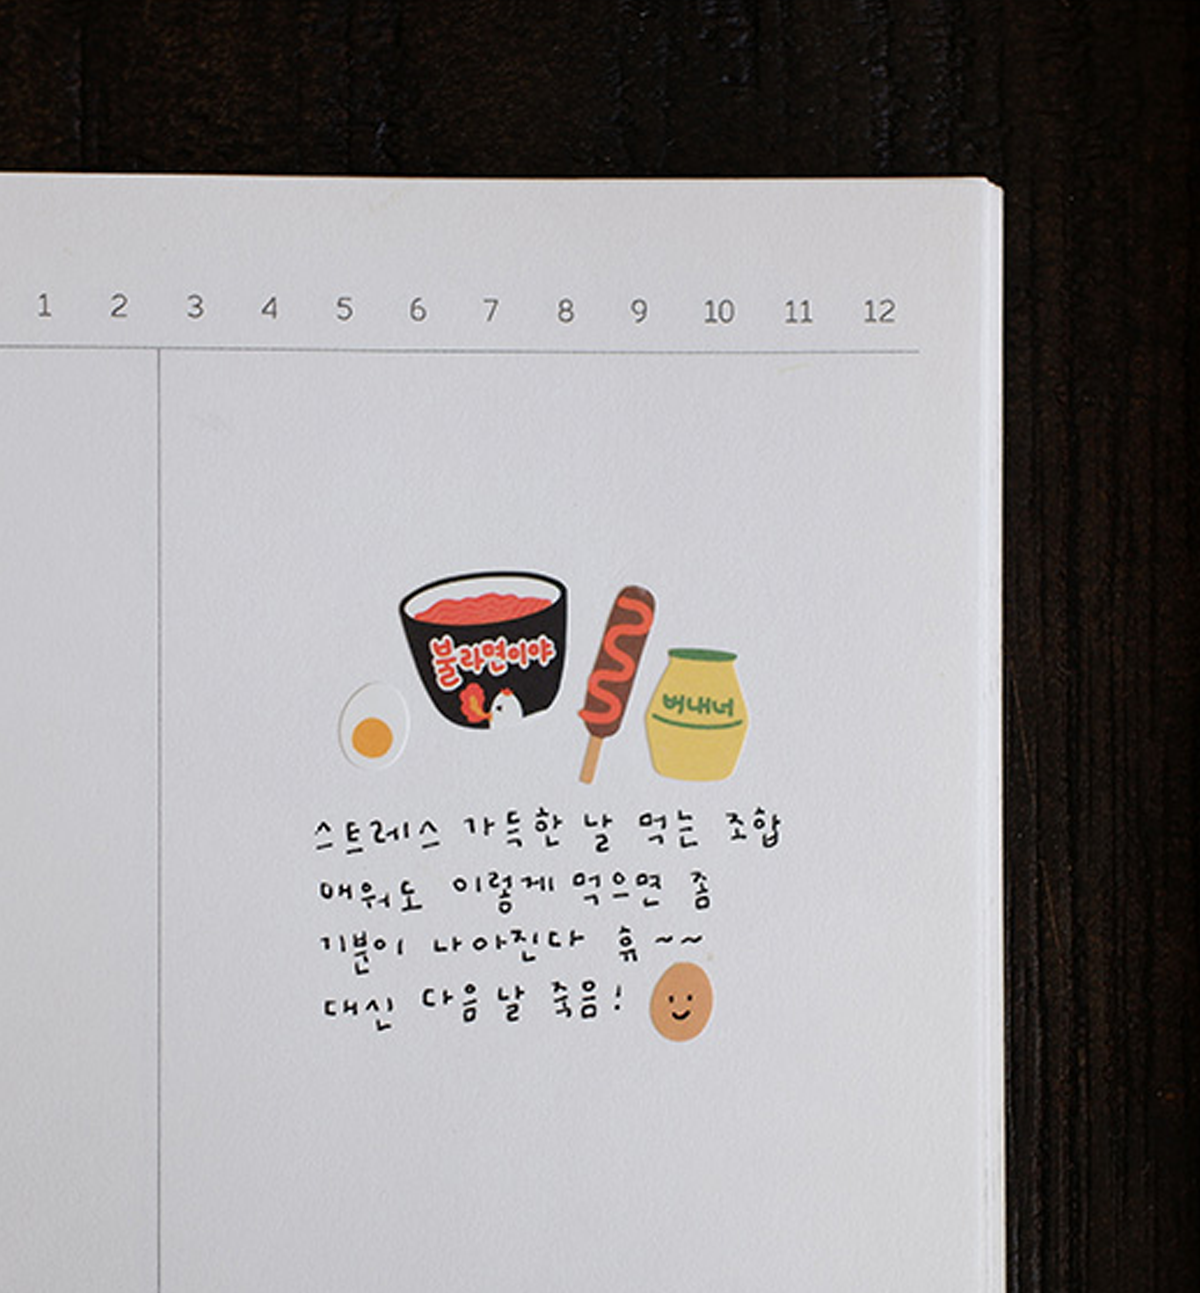 1 2 3 4 5 6 7 8 9 10 11 12
불라면이야
버내너
스트레스 가득한 날 먹는 조합
매워도 이렇게 먹으면 좀
기분이 나아진다 휴~~
대신 다음날 죽음!